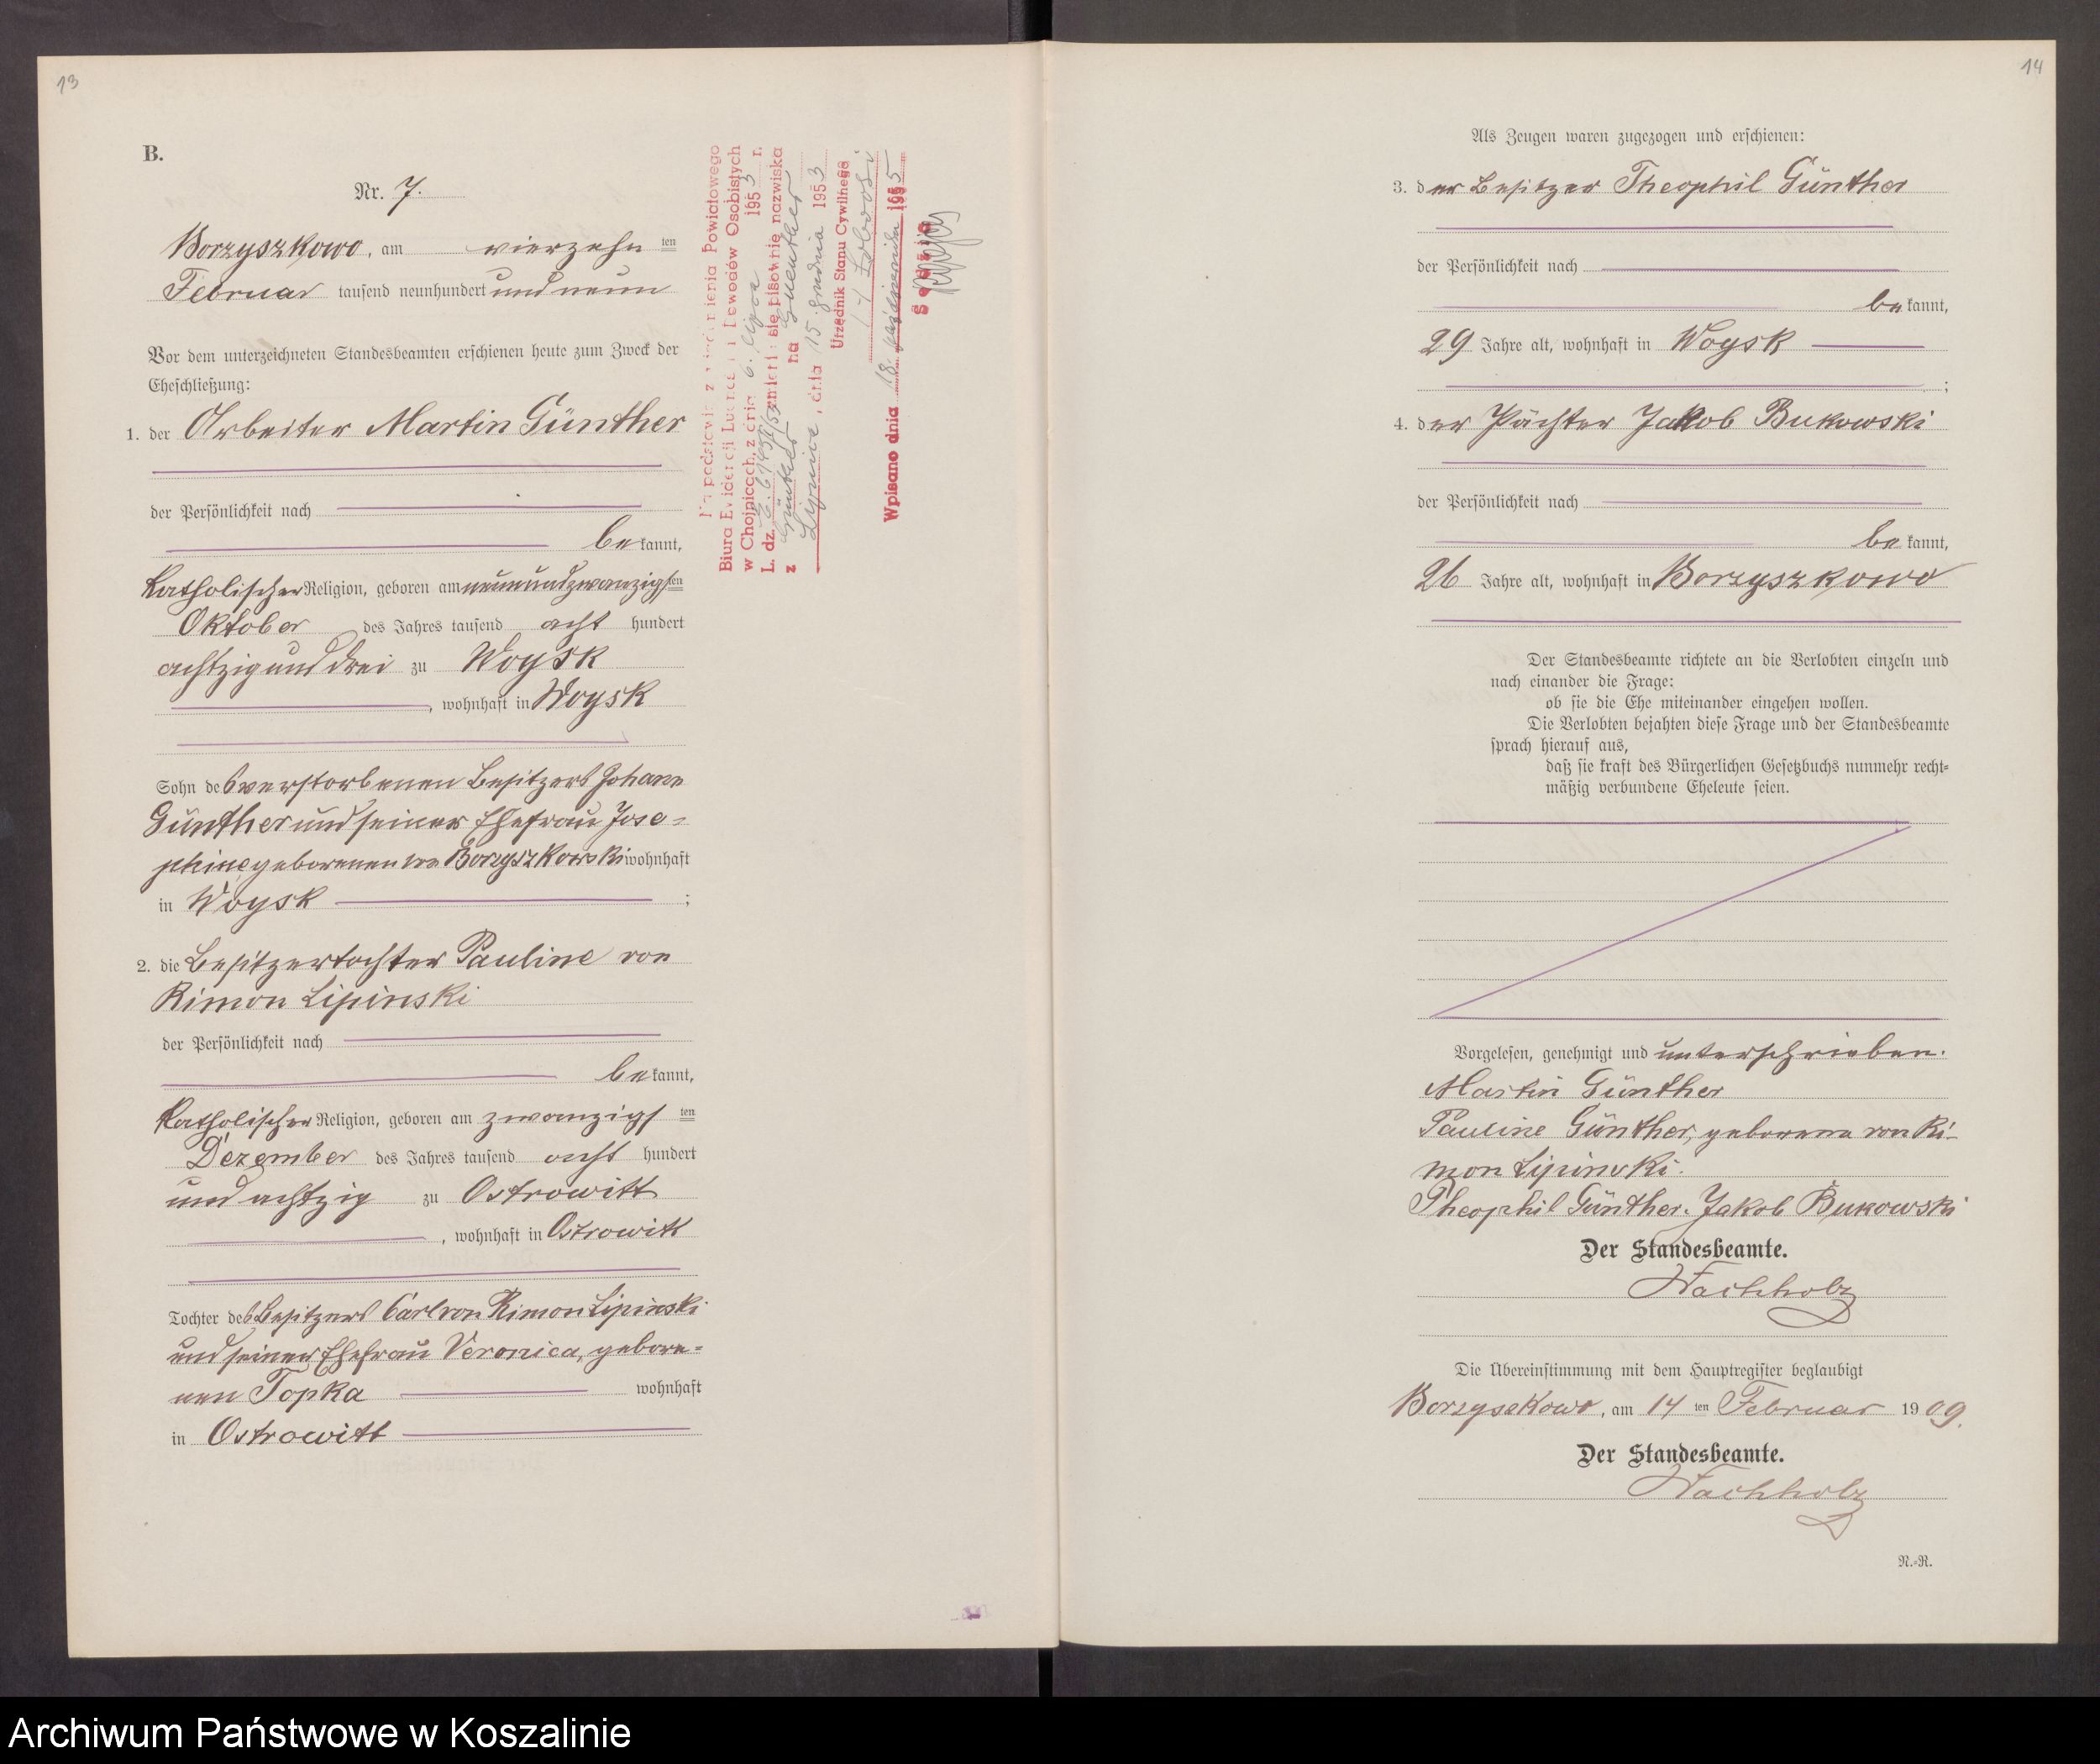 13
B.
Nr. 7.
Borzyszkowo, am vierzehn ten
Februar tausend neunhundert und neun
Vor dem unterzeichneten Standesbeamten erschienen heute zum Zweck der
Eheschließung:
1. der Arbeiter Martin Günther
der Persönlichkeit nach
bekannt,
katholischer Religion, geboren am neunundzwanzigsten
Oktober des Jahres tausend acht hundert
achtzig und drei zu Woysk
, wohnhaft in Woysk
Sohn des verstorbenen Besitzers Johann
Günther und seiner Ehefrau Jose-
phine geborenen von Borzyszkowski wohnhaft
in Woysk ;
2. die Besitzertochter Pauline von
Kimon Lipinski
der Persönlichkeit nach
bekannt,
katholischer Religion, geboren am zwanzigsten
Dezember des Jahres tausend acht hundert
und achtzig zu Ostrowitt
, wohnhaft in Ostrowitt
Tochter des Besitzers Carl von Kimon Lipinski
und seiner Ehefrau Veronica, gebore-
nen Topka wohnhaft
in Ostrowitt
Na podstawie zawiadomienia Powiatowego
Biura Ewidencji Ludności i Dowodów Osobistych
w Chojnicach, z dnia 6. lipca 1953 r.
L. dz. zmienia się pisownię nazwiska
z Günther na Guenther
Lipnica, dnia 15. grudnia 1953
Urzędnik Stanu Cywilnego
Wpisano dnia 18. października 1955
Sędzia
14
Als Zeugen waren zugezogen und erschienen:
3. der Besitzer Theophil Günther
der Persönlichkeit nach
bekannt,
29 Jahre alt, wohnhaft in Woysk
;
4. der Pächter Jakob Bukowski
der Persönlichkeit nach
bekannt,
26 Jahre alt, wohnhaft in Borzyszkowo
Der Standesbeamte richtete an die Verlobten einzeln und
nach einander die Frage:
ob sie die Ehe miteinander eingehen wollen.
Die Verlobten bejahten diese Frage und der Standesbeamte
sprach hierauf aus,
daß sie kraft des Bürgerlichen Gesetzbuchs nunmehr recht-
mäßig verbundene Eheleute seien.
Vorgelesen, genehmigt und unterschrieben.
Martin Günther
Pauline Günther, geborene von Ki-
mon Lipinski.
Theophil Günther. Jakob Bukowski
Der Standesbeamte.
Wachholz
Die Übereinstimmung mit dem Hauptregister beglaubigt
Borzyszkowo, am 14 ten Februar 1909.
Der Standesbeamte.
Wachholz
N.-R.
Archiwum Państwowe w Koszalinie